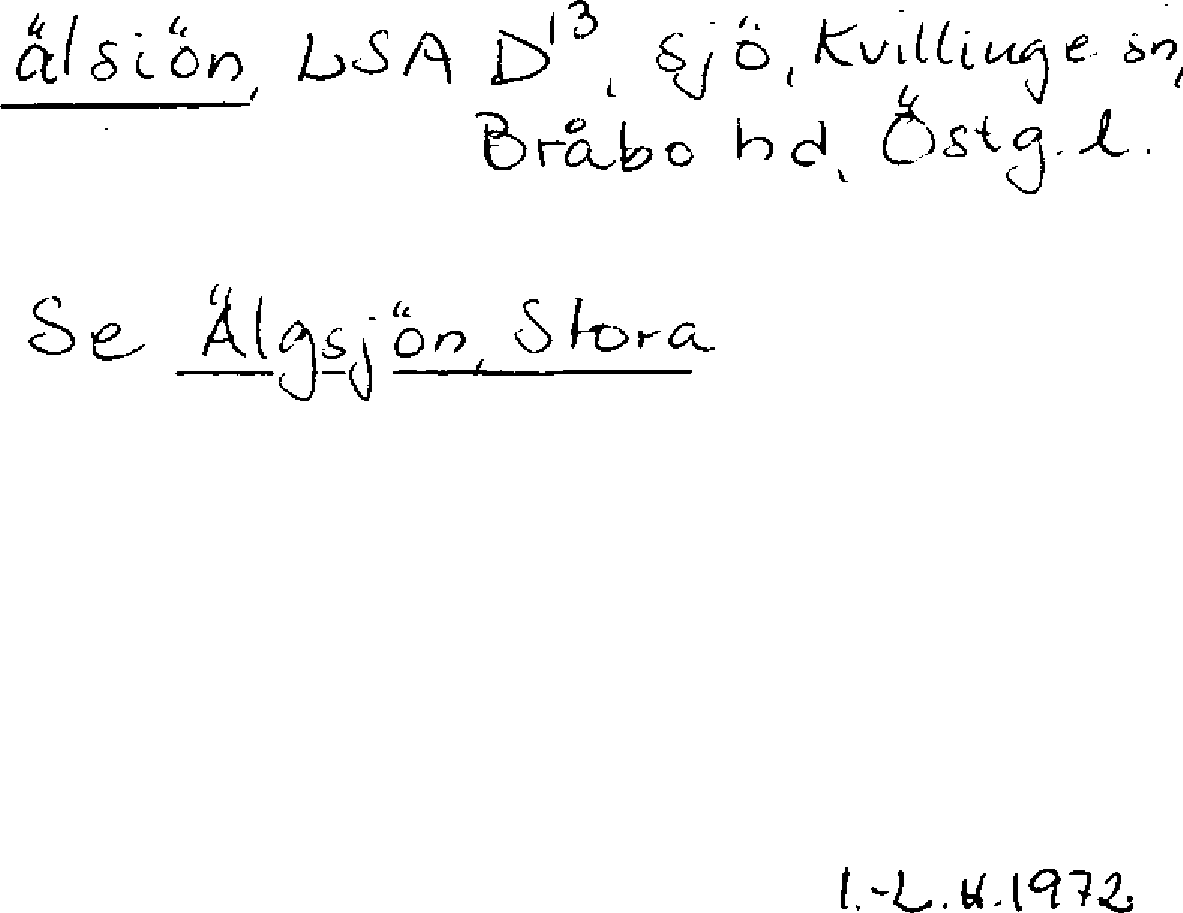 älsiön, LSA D13, sjö, Kvillinge sn,
Bråbo hd, Östg. l.
Se Älgsjön, Stora
I.-L. H. 1972